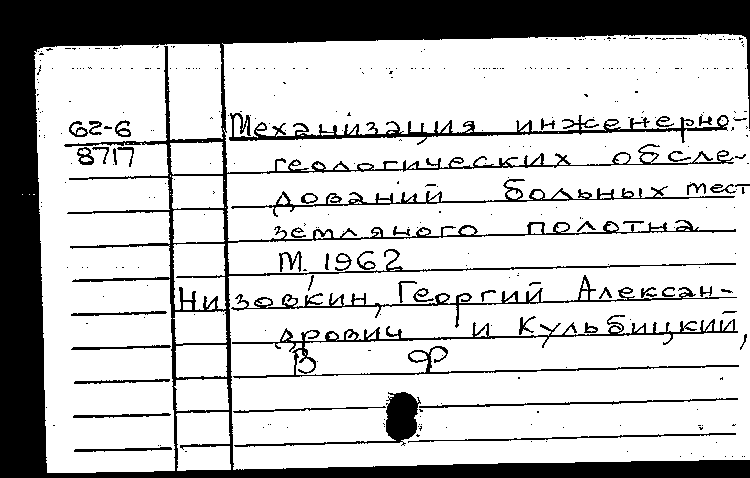 62-6
8717
Механизация инженерно-
геологических обсле-
дований больных мест
земляного полотна
М, 1962
Низовкин, Георгий Алексан-
дрович и Кульбицкий,
В Ф